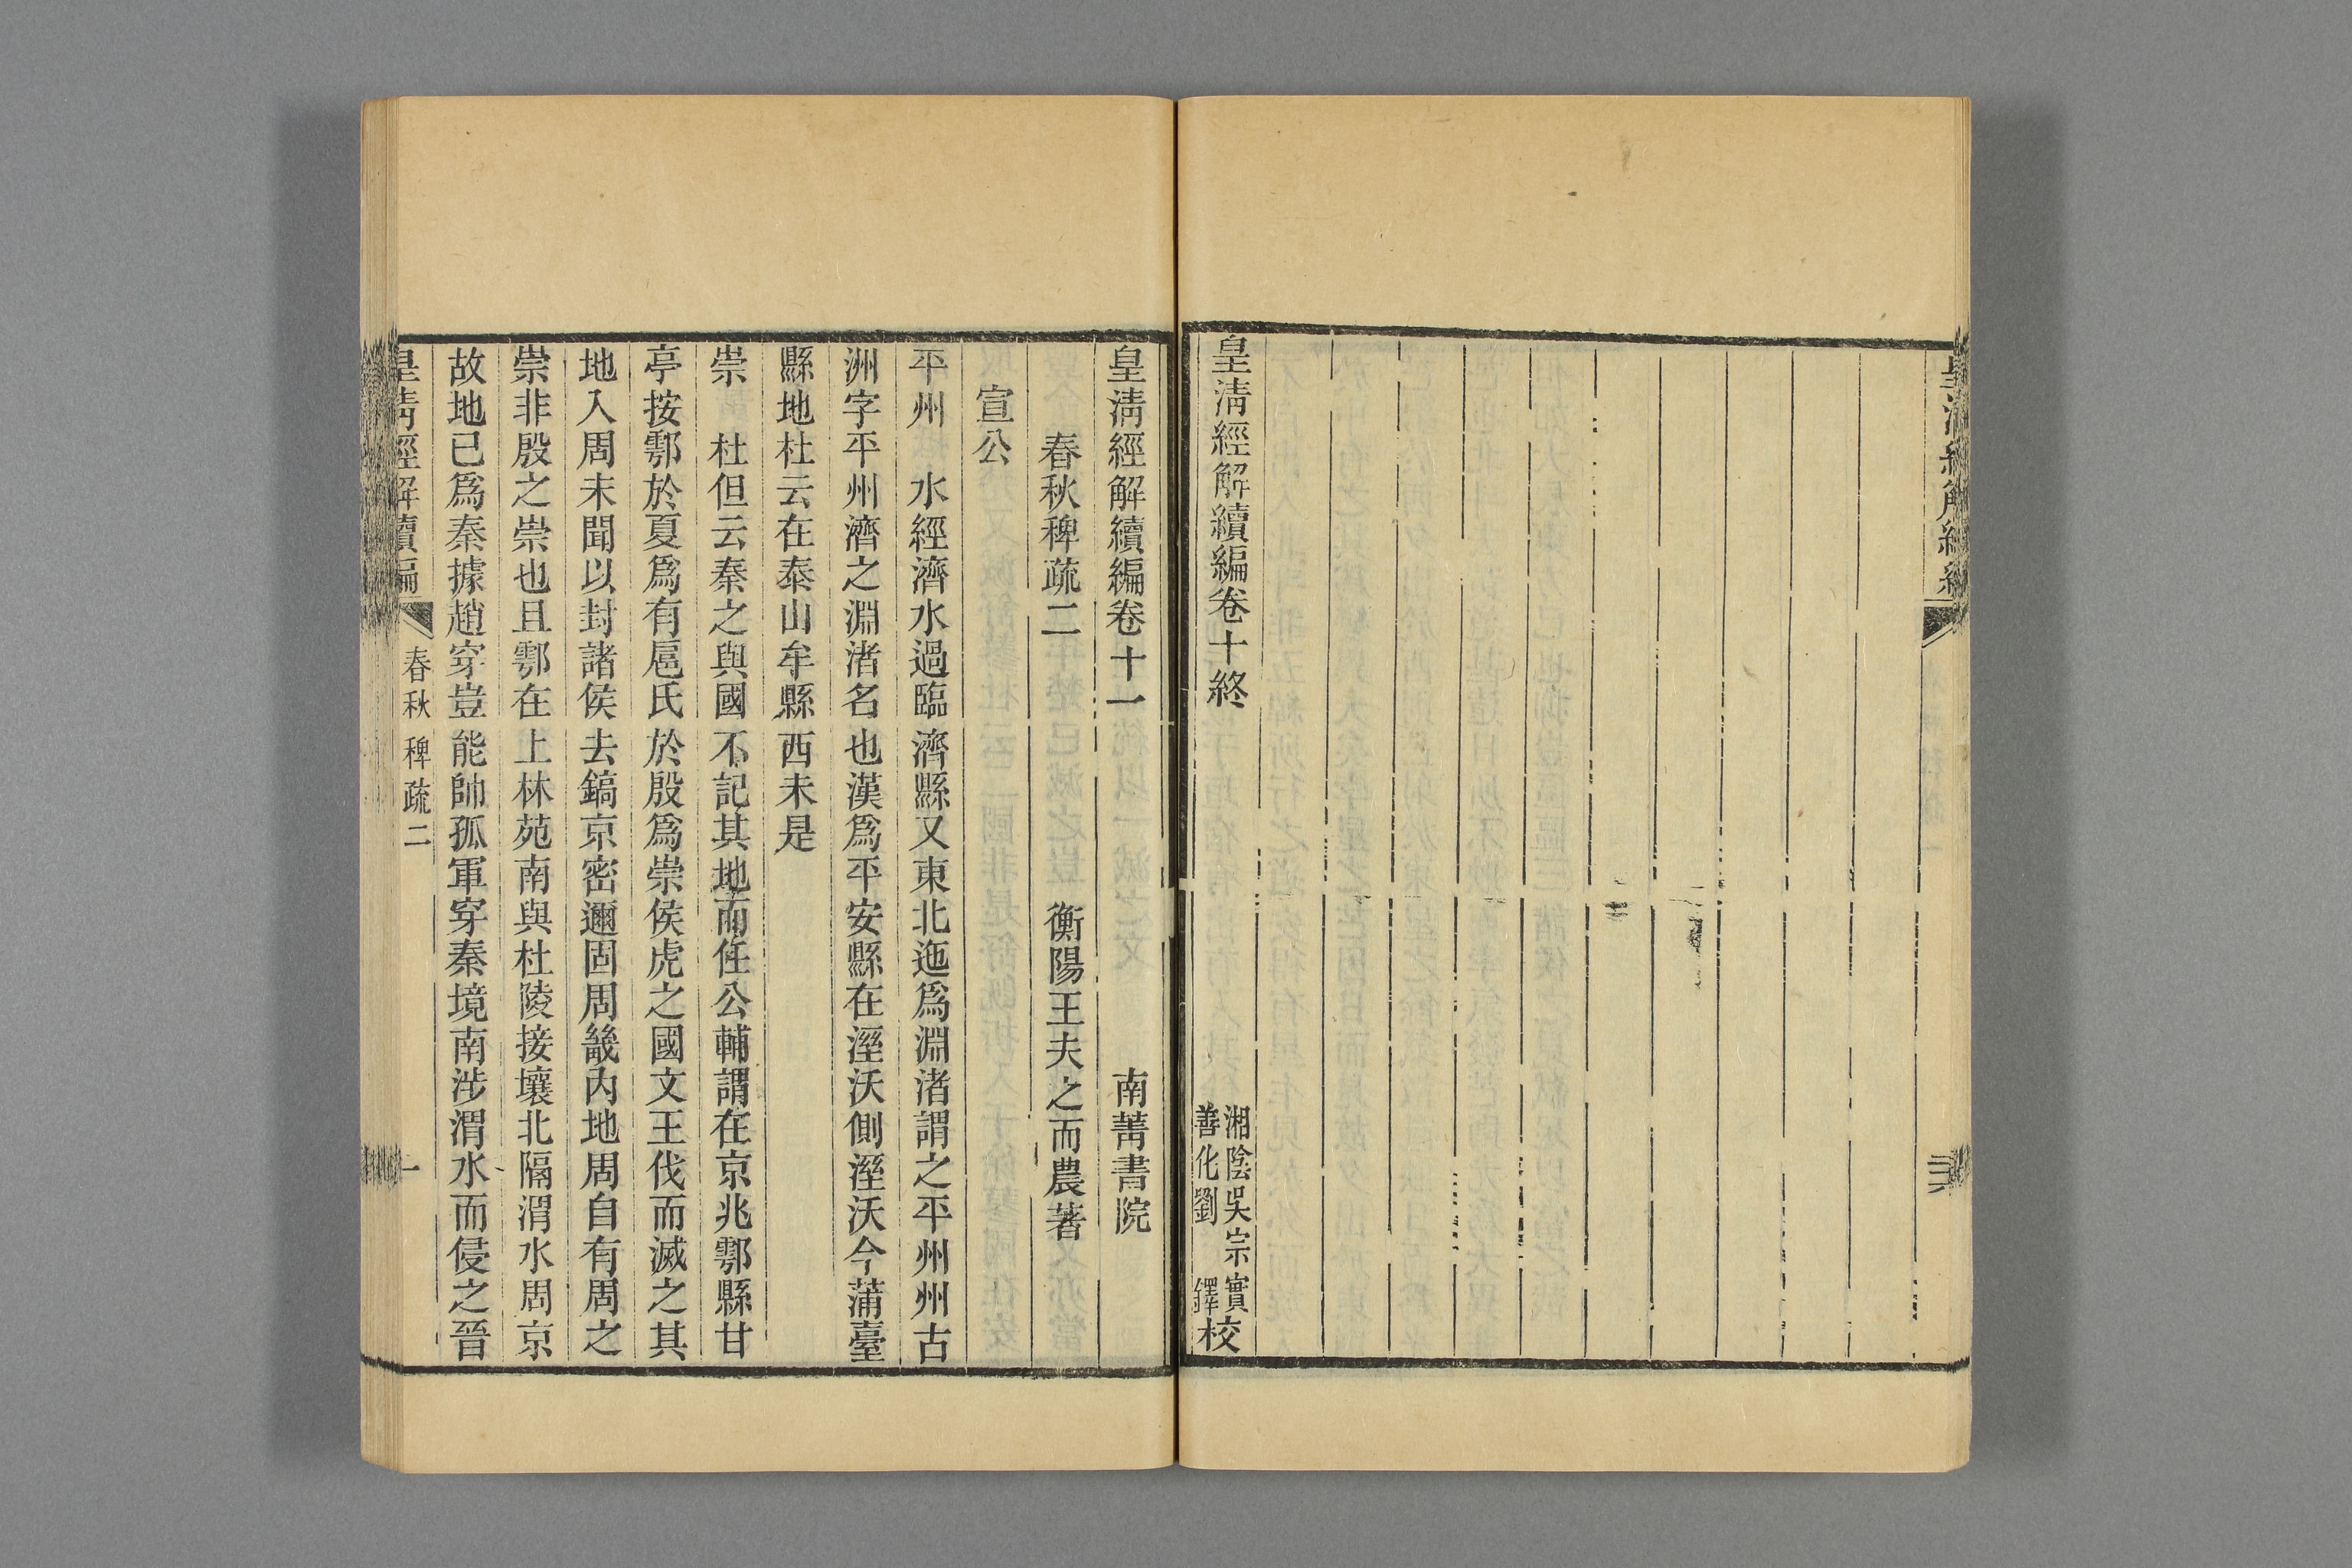 皇清經解續編
皇清經解續編卷十終
湘陰吳宗實
善化劉鐸校
皇清經解續編卷十一 南菁書院
春秋稗疏二 衡陽王夫之而農著
宣公
平州 水經濟水過臨濟縣又東北迤爲淵渚謂之平州州古
洲字平州濟之淵渚名也漢爲平安縣在溼沃側溼沃今蒲臺
縣地杜云在泰山牟縣西未是
崇 杜但云秦之與國不記其地而任公輔謂在京兆鄠縣甘
亭按鄠於夏爲有扈氏於殷爲崇侯虎之國文王伐而滅之其
地入周未聞以封諸侯去鎬京密邇固周畿內地周自有周之
崇非殷之崇也且鄠在上林苑南與杜陵接壤北隔渭水周京
故地已爲秦據趙穿豈能帥孤軍穿秦境南涉渭水而侵之晉
皇清經解續編 春秋稗疏二 一